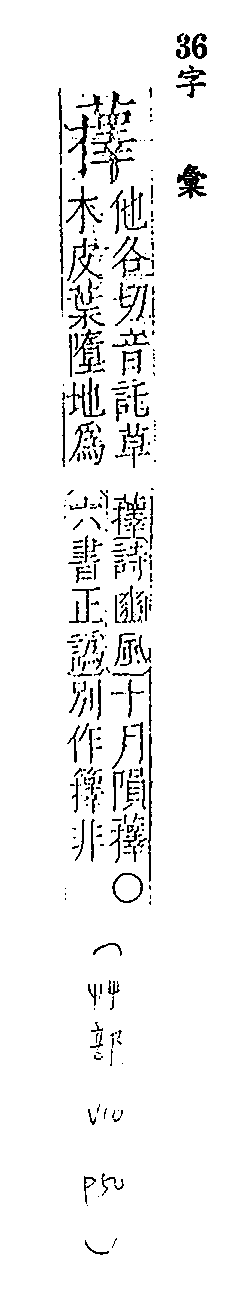 36字 彙
蘀
他各切音託草
木皮葉墮地爲
蘀詩豳風十月隕蘀○
六書正譌別作籜非
(艸部 V10 P50)